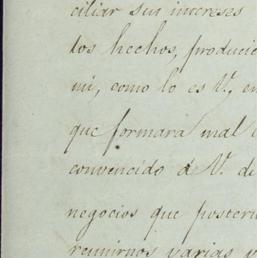 ciliar sus intereses
los hechos, produci
mi, como lo es V., en
que formará mal
convencido á V. de
negocios que posteri
reunirnos varias v